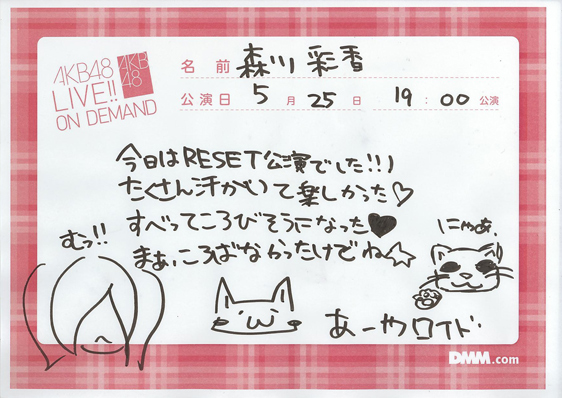 AKB48
LIVE!!
ON DEMAND
AKB
48
名 前 森川 彩香
公演日 5 月 25 日 19 : 00 公演
今日はRESET公演でした!!)
たくさん汗かいて楽しかった♡
すべってころびそうになった♥
まぁ、ころばなかったけどね☆
むっ!!
にゃぁあ、
あーやロイド.
DMM.com